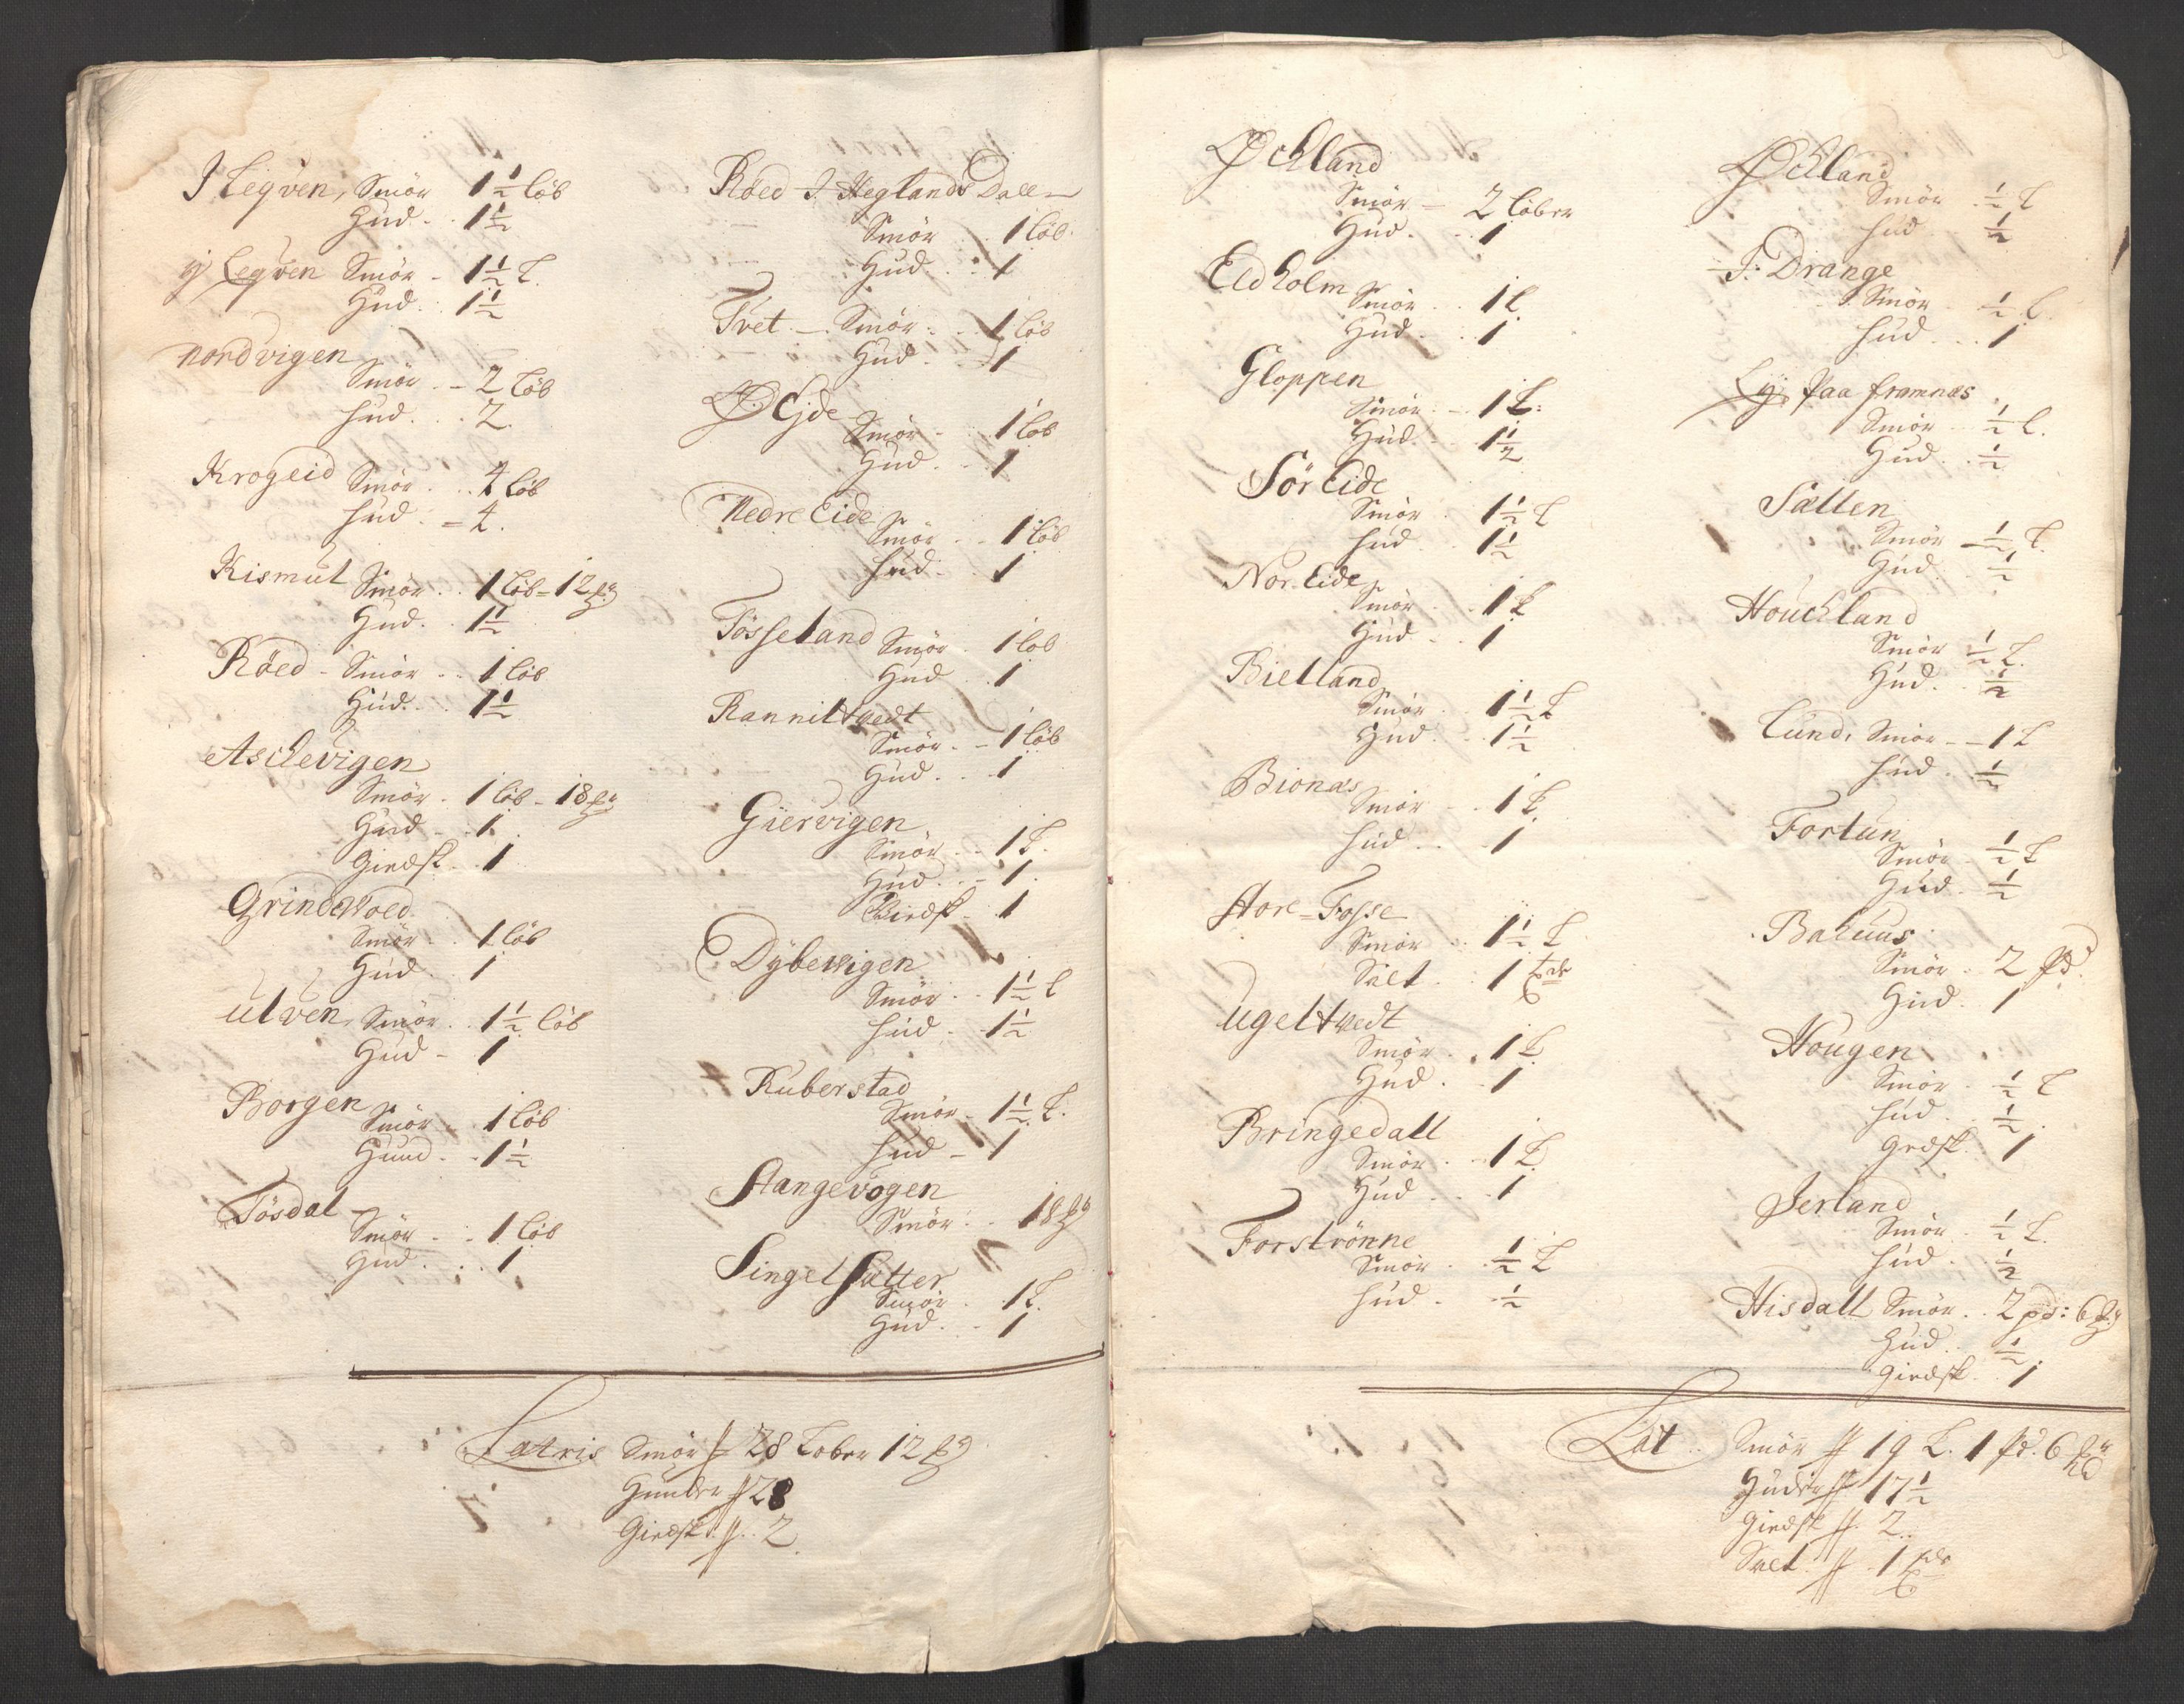 I Leqven, Smör 1½ löb
Hud.. 1½
ij Leqven Smör - 1½ L.
Hud.. 1½
Nordvigen
Smör.. - 2 Löb
Hud... 2.
Krogeid Smör... 4 Löb
Hud. - 4.
Kismul Smör.. 1 Löb - 12
Hud.. 1½
Röed - Smör... 1 Löb
Hud.... 1½
Aschevigen
Smör. 1 löb - 18
Hud - - 1.
Giedsk.. 1
Grindevoed
Smör.. 1 löb
Hud.. 1
Ulven, Smör.. 1½ löb
Hud - 1
Borgen
Smör.. 1 löb
Huud. - 1½
Tösdal
Smör. - 1 löb
Hud.... 1
Röed I. Heglands Dall
Smör.. 1 löb.
Hud... 1
Tvet - Smör... 1 löb
Hud - 1
Ø Ejde
Smör... 1 löb
Hud... 1
Nedre Eide
Smör - - 1 löb
Hud.. 1
Tösseland Smör. 1 lob
Hud.. 1
Ranniltvedt
Smör. - 1 löb
Hud... 1
Giervigen
Smör... 1 L.
Hud. - - 1.
Giedsk - 1
Dybevigen
Smör.. 1½ L
Hud.. 1½
Kuberstad
Smör. 1½ L.
Hud - 1
Stangevogen
Smör... 18
Singelsætter
Smör.. 1 L.
Hud. - 1
Latris Smör 28 Löber 12
Huuder 28
Giedsk.. 2.
Øchland
Smör - 2 Löber
Hud... 1
Eldholm Smör.. 1 L
Hud... 1
Gloppen
Smör. - 1 L:
Hud.. 1½
Sör Eide
Smör.. 1½ L
Hud.. 1½
Nor Eide
Smör.. 1 L
Hud - 1
Bielland
Smör.. 1½ L
Hud.. 1½
Bionæs
Smör - - 1 L.
Hud... 1
Store-Fosse
Smör.. 1½ L
Salt.. 1
Ugeltvedt
Smör.. 1 L
Hud.. 1
Bringedall
Smör.. 1 L
Hud... 1
Forströnne
Smör.. ½ L
Hud.. ½
Øchland
Smör.. ½ L
Hud ½
I. Drange
Smör. ½ L.
Hud... 1
Ey Paa framnæs
Smör.. ½ L.
Hud.. ½
Sætten
Smör ½ L.
Hud.. ½
Houchland
Smör ½ L.
Hud.. ½
Lund, Smör - - 1 L
Hud.. ½
Fortun
Smör.. ½ L
Hud. ½
Bahuus
Smör.. 2 Pd.
Hud. 1
Hougen
Smör.. ½ L
Hud.. ½.
Gedsk.. 1
Jerland
Smör.. ½ L.
Hud.. ½
Hisdall Smör.. 2 pd: 6
Hud.. ½
Giedsk.. 1
Lat.. Smör 19 L. 1 Pd. 6
Huder 17½
Giedsk 2..
Salt.. 1